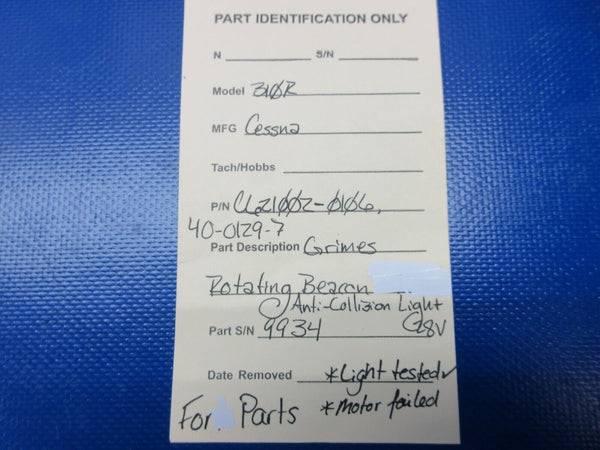 PART IDENTIFICATION ONLY
N S/N
Model 310R
MFG Cessna
Tach/Hobbs
P/N CL621002-0106,
40-0129-7
Part Description Grimes
Rotating Beacon
Anti-Collision Light
Part S/N 9934 28V
Date Removed *Light tested
For Parts *Motor failed